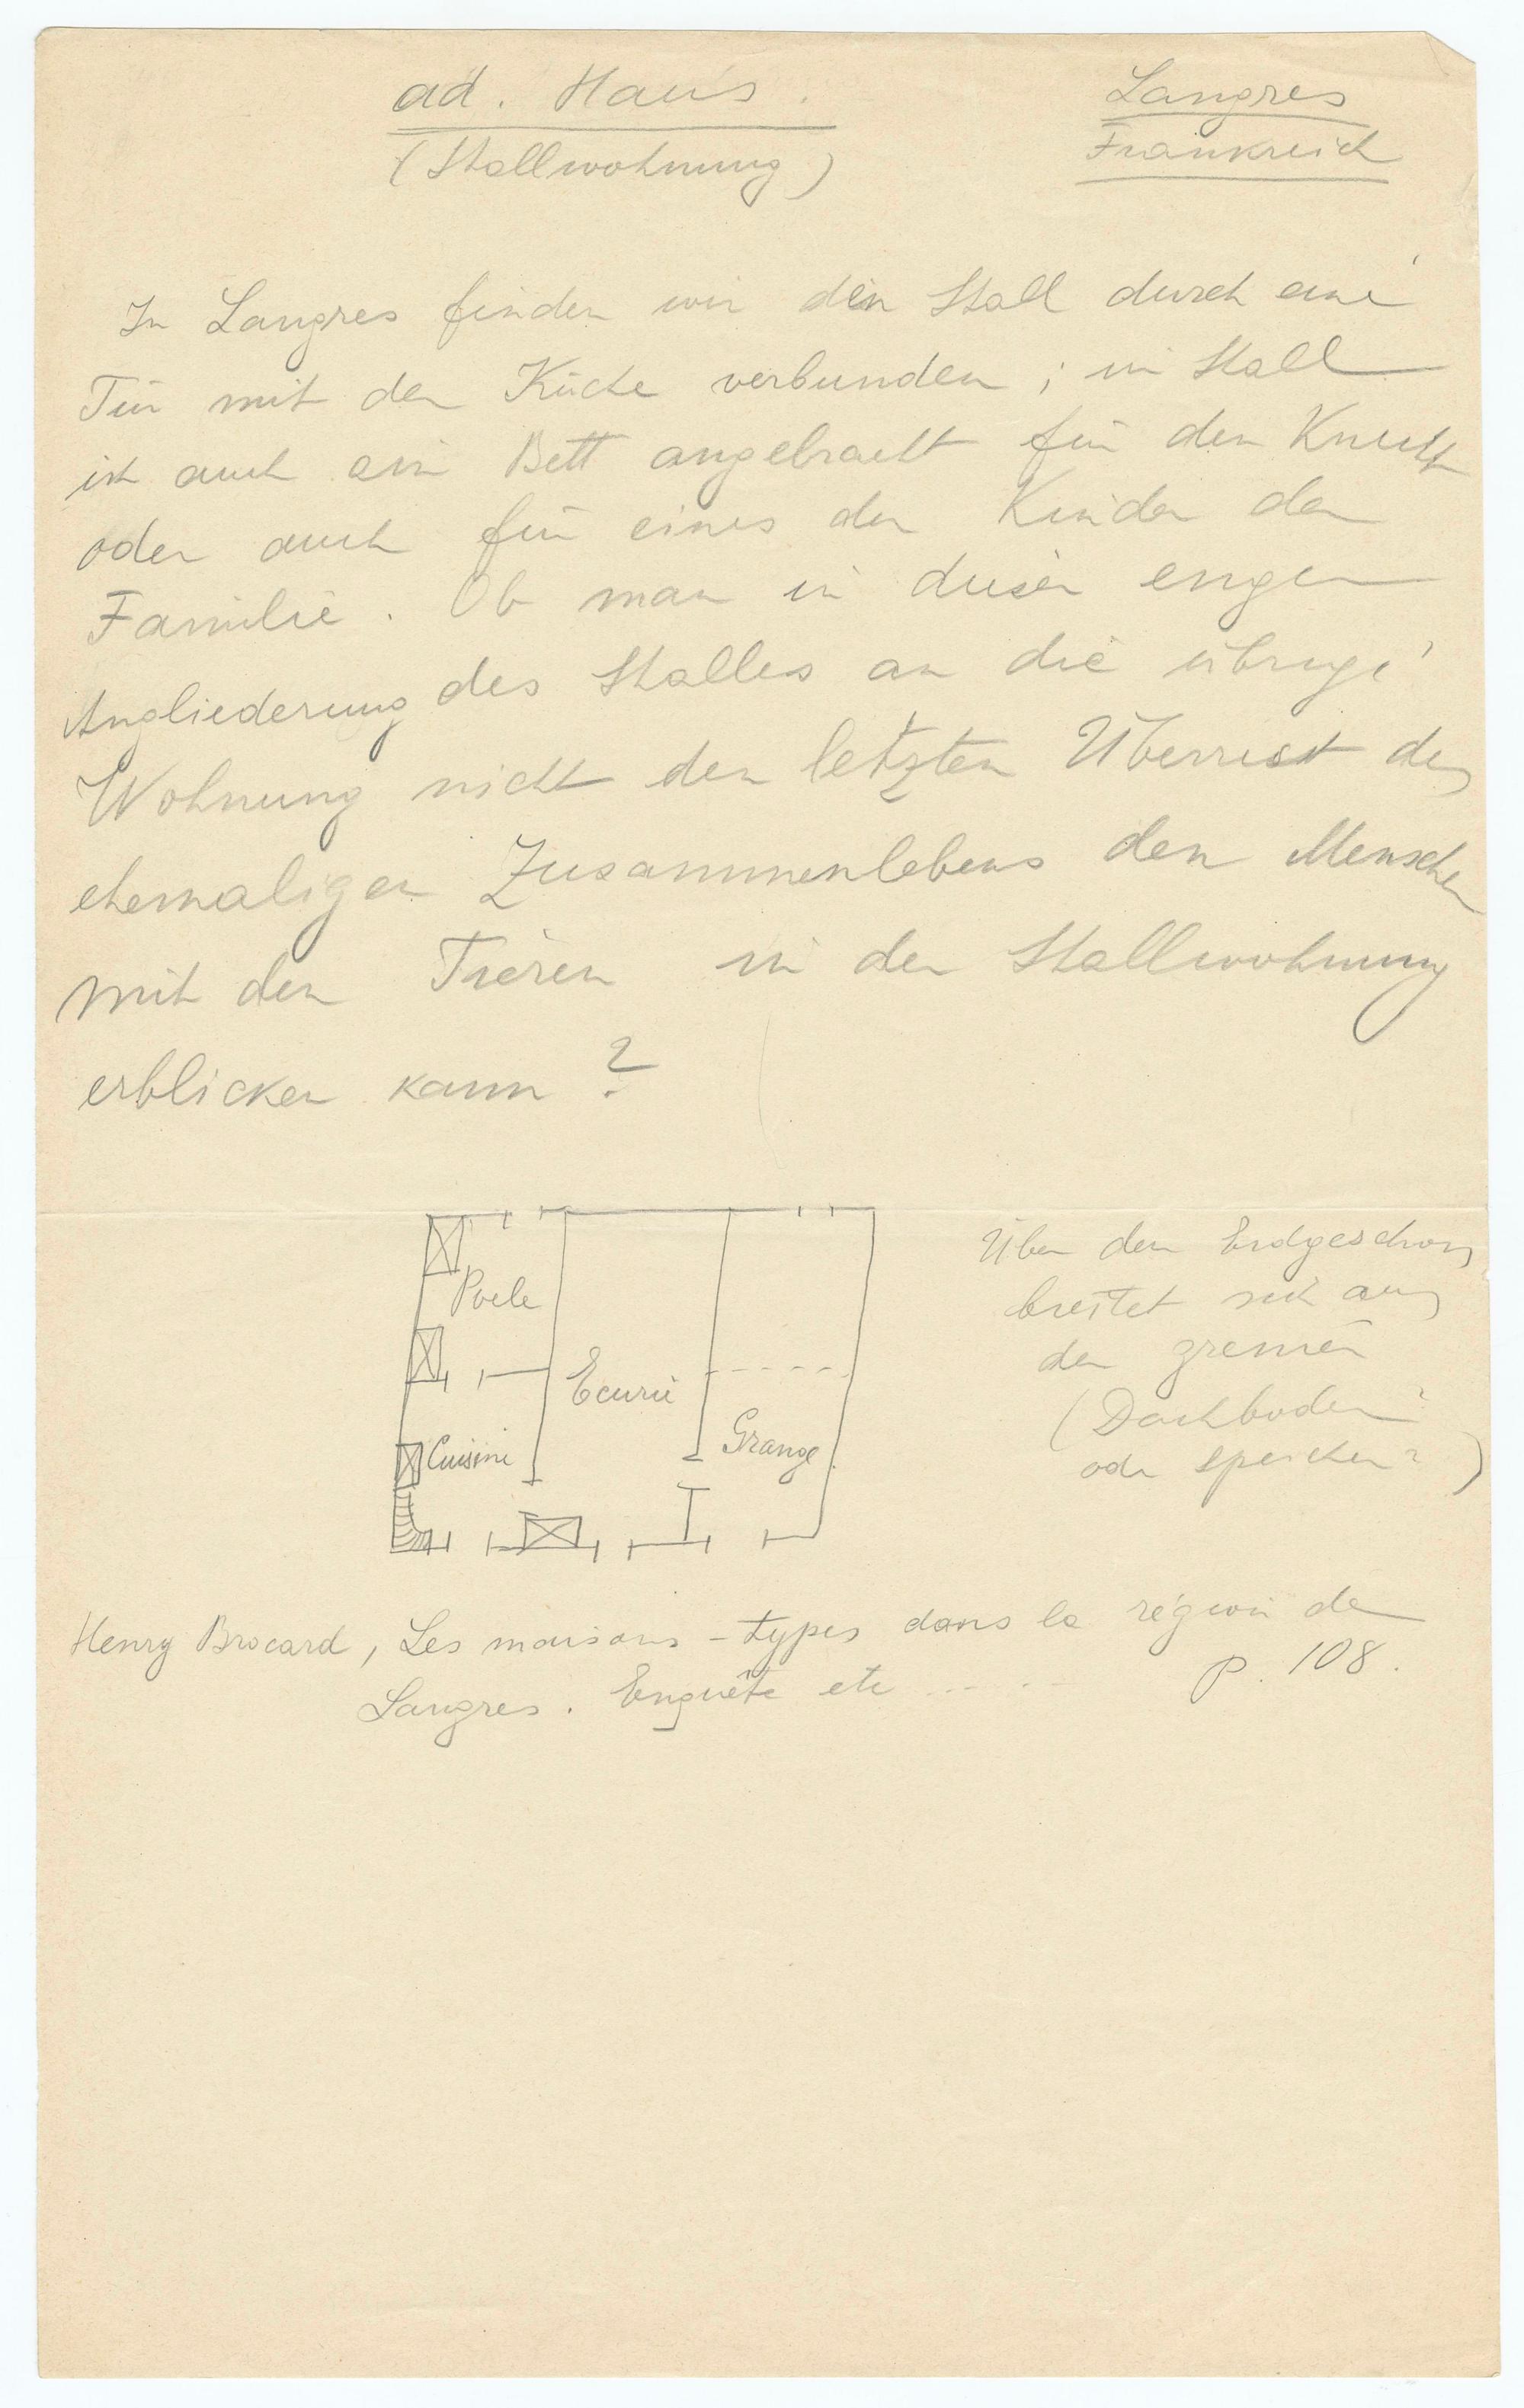 ad. Haus.
(Stallwohnung)
Langres
Frankreich
In Langres finden wir den Stall durch eine
Tür mit der Küche verbunden; im Stall
ist auch ein Bett angebracht für den Knecht
oder auch für eines der Kinder der
Familie. Ob man in dieser engen
Angliederung des Stalles an die übrige
Wohnung nicht den letzten Überrest des
ehemaligen Zusammenlebens der Menschen
mit den Tieren in der Stallwohnung
erblicken kann?
Poele
Ecurie
Cuisine
Grange
Über dem Erdgeschoss
breitet sich aus
der grenier
(Dachboden
oder Speicher?)
Henry Brocard, Les maisons-types dans la région de
Langres. Enquête etc ..... p. 108.